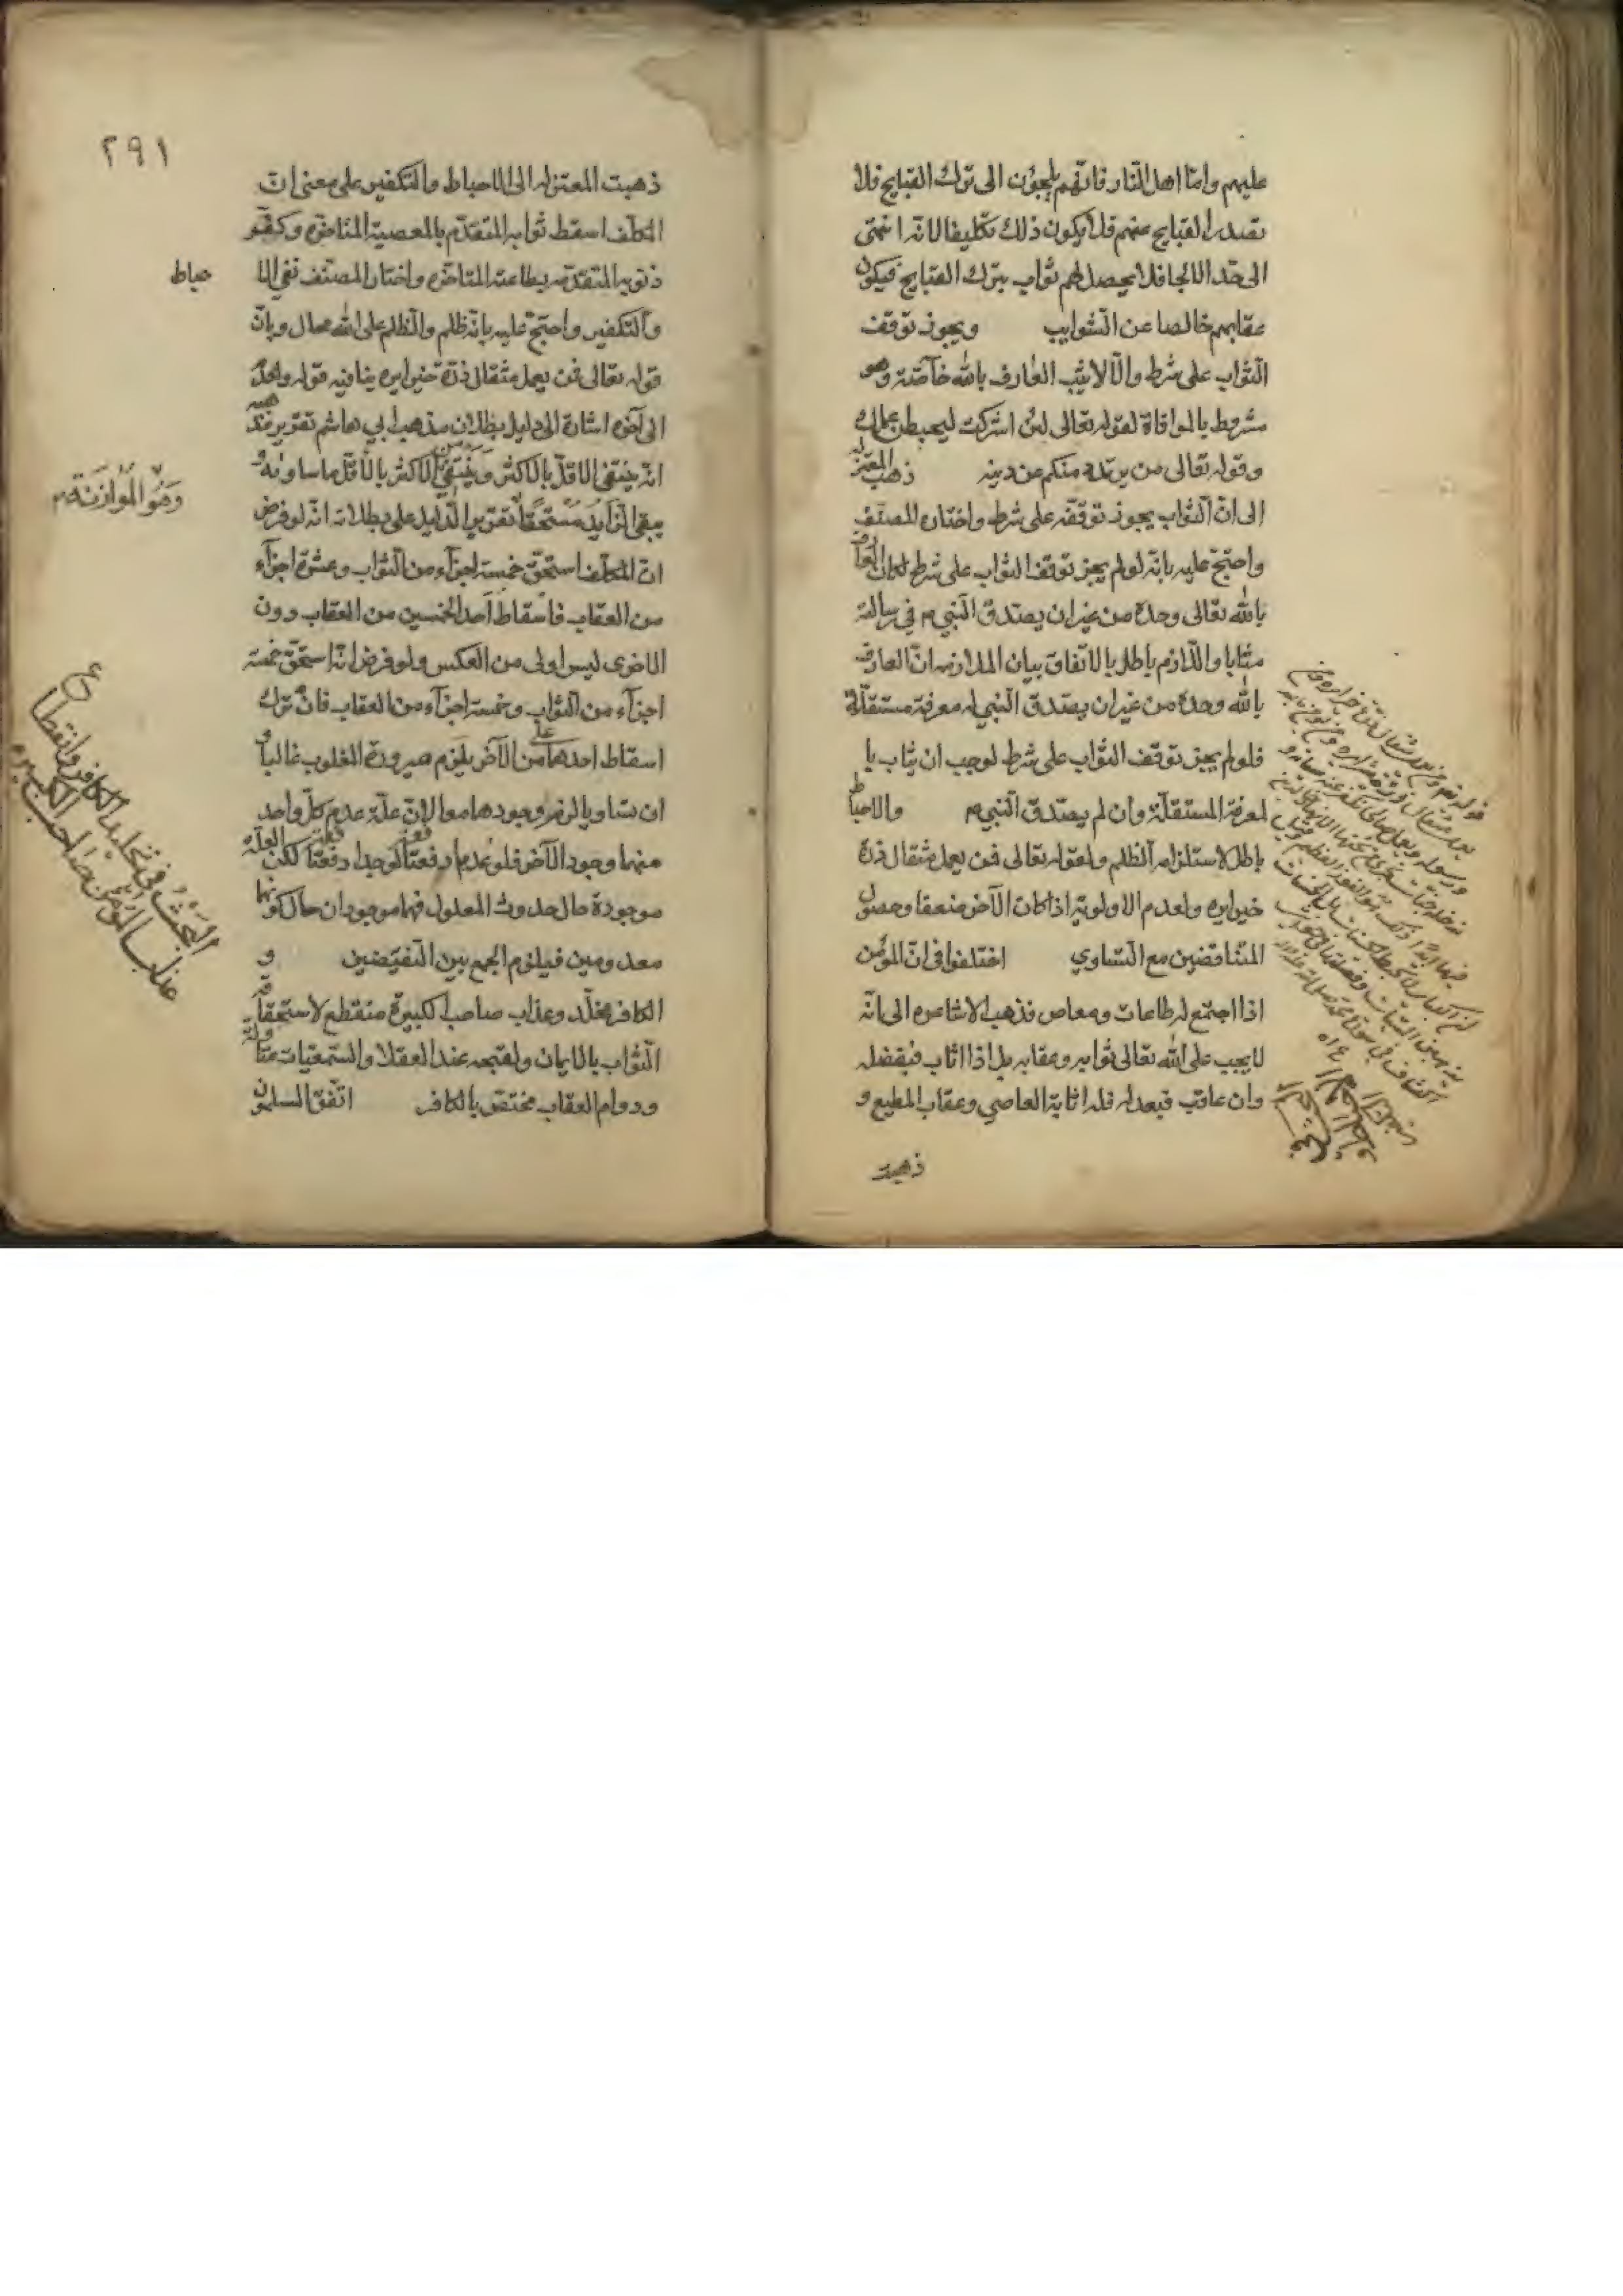 عليهم واما اهل النار فانهم يلجؤن الى ترك القبايح فلا
يصدر القبايح عنهم فلا يكون ذلك تكليفا لانه انتهى
الى حدّ الالجا فلا يحصل لهم ثواب بترك القبايح فيكون
عقابهم خالصا عن الشوايب ويجوز توقف
الثواب على شرط والّا لاثيب العارف بالله خاصّة وهو
مشروط بالموافاة لقوله تعالى لئن اشركت ليحبطن عملك
وقوله تعالى من يرتدد منكم عن دينه ذهب المعتزله
الى انّ الثواب يجوز توقفه على شرط واختاره المصنف
واحتج عليه بانه لو لم يجز توقف الثواب على شرط لكان العارف
بالله تعالى وحده من غير ان يصدق النبي م في رسالته
مثابا واللازم باطل بالاتفاق بيان الملازمه انّ العارف
بالله وحده من غير ان يصدق النبي له معرفة مستقلّة
فلو لم يجز توقف الثواب على شرط لوجب ان يثاب با
لمعرفة المستقلّة وان لم يصدق النبي م والاحباط
باطل لاستلزامه الظلم ولقوله تعالى فمن يعمل مثقال ذرة
خيرا يره ولعدم الاولوية اذا كان الآخر ضعفا وحصول
المتناقضين مع التساوي اختلفوا في انّ المؤمن
اذا اجتمع له طاعات ومعاص فذهب الاشاعره الى انّه
لا يجب على الله تعالى ثوابه وعقابه بل اذا اثاب فبفضله
وان عاقب فبعدله فله اثابة العاصي وعقاب المطيع و
ذهبت
٢٩١
ذهبت المعتزله الى الاحباط والتكفير على معنى انّ
المكلف اسقط ثوابه المتقدّم بالمعصية المتاخرة وكفّر
ذنوبه المتقدمه بطاعته المتاخره واختار المصنف نفي الا
حباط
والتكفير واحتج عليه بانه ظلم والظلم على الله محال وبانّ
قوله تعالى فمن يعمل مثقال ذرة خيرا يره ينافيه قوله ولعدم
الى آخره اشارة الى دليل بطلان مذهب ابي هاشم تقرير مذهبه
انه ينتفى الاقلّ بالاكثر وينتفى من الاكثر بالاقلّ ما ساواه و
وهو الموازنة
يبقى الزايد مستحقا تقرير الدليل على بطلانه انه لو فرض
انّ المكلف استحق خمسة اجزاء من الثواب وعشرة اجزآء
من العقاب فاسقاط احد الخمسين من العقاب دون
الاخرى ليس اولى من العكس ولو فرض انّه استحق خمسة
اجزآء من الثواب وخمسة اجزآء من العقاب فان ترك
اسقاط احدهما من الآخر يلزم صيرورة المغلوب غالبا و
ان تساويا لزم وجودهما معا لانّ علّة عدم كلّ واحد
منهما وجود الآخر فلو عدما دفعة لوجدا دفعة لكن العلّة
موجودة حال حدوث المعلول فهما موجودان حال كونهما
معدومين فيلزم الجمع بين النقيضين و
الكافر مخلّد وعذاب صاحب الكبيرة منقطع لاستحقاقه
الثواب بالايمان ولقبحه عند العقلا والسمعيات متأولة
ودوام العقاب مختص بالكافر اتّفق المسلمون
البحث في تخليد الكافر وانقطاع
عذاب المؤمن صاحب الكبيره